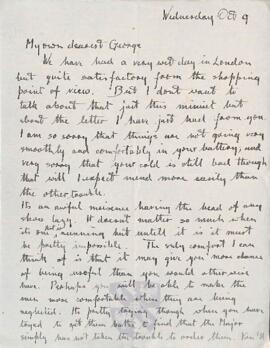 Wednesday Oct 9
My own dearest George
We have had a very wet day in London
but quite satisfactory from the shopping
point of view. But I don't want to
talk about that just this minuet but
about the letter I have just had from you.
I am so sorry that things are not going very
smoothly and comfortably in your battery; and
very sorry that your cold is still bad though
that will I expect mend more easily than
the other trouble.
Its an awful nuisance having the head of any
show lazy. It doesnt matter so much when
its one running but untill it is it must
be pretty impossible. The only comfort I can
think of is that it may give you more chance
of being useful than you would otherwise
have. Perhaps you will be able to make the
men more comfortable when they are being
neglected. Its pretty trying though when you have
to get them bathes to find that the Major
simply has not taken the trouble to order them. You'll